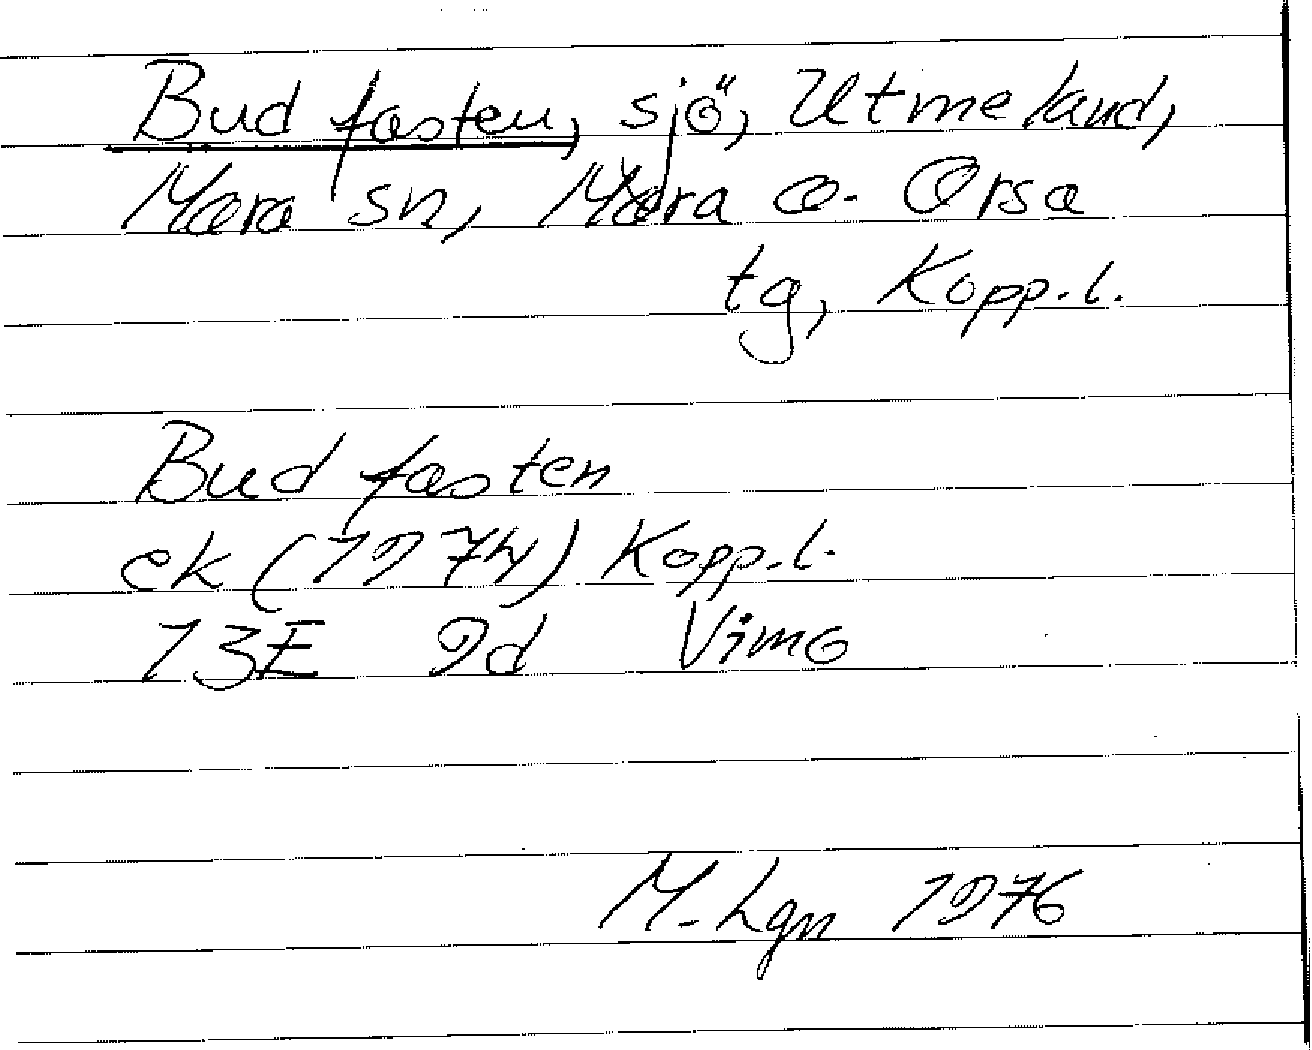 Budfasten, sjö, Utmeland,
Mora sn, Mora o. Orsa
tg, Kopp.l.
Budfasten
ek (1974) Kopp.l.
13E 9d Vimo
M. Lgn 1976